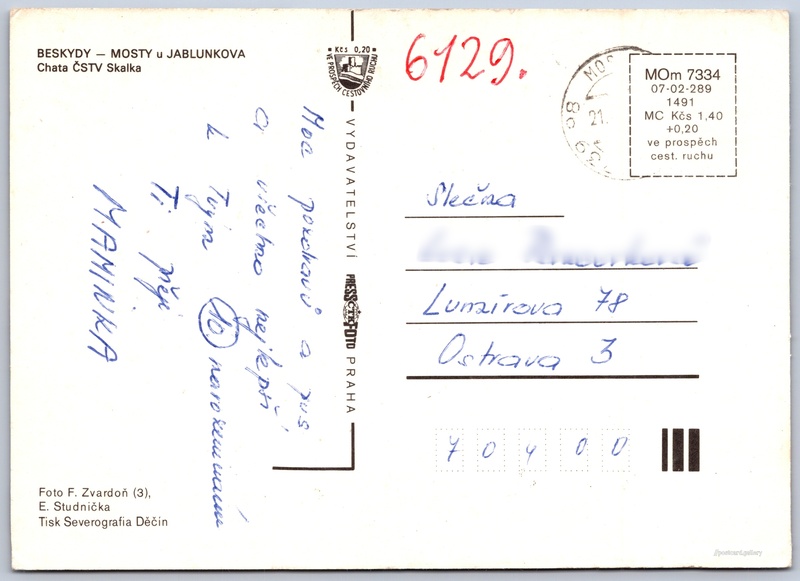 BESKYDY — MOSTY u JABLUNKOVA
Chata ČSTV Skalka
Moc pozdravů a pus
a všechno nejlepší
k Tvým 10. narozeninám
Ti přeje
MAMINKA
Foto F. Zvardoň (3),
E. Studnička
Tisk Severografia Děčín
Kčs 0,20
VE PROSPĚCH CESTOVNÍHO RUCHU
VYDAVATELSTVÍ
PRESSFOTO
ČTK
PRAHA
6129.
MOm 7334
07-02-289
1491
MC Kčs 1,40
+0,20
ve prospěch
cest. ruchu
Slečna
Lumírova 78
Ostrava 3
70400